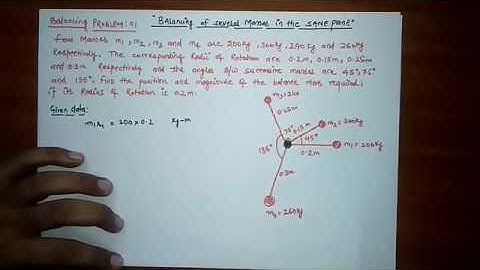 Balancing PROBLEM: 01 "BALANCING of several Masses in the SAME PLANE"
Four Masses m1, m2, m3 and m4 are 200kg, 300kg, 240kg and 260kg
Respectively. The corresponding Radii of Rotation are 0.2m, 0.15m, 0.25m
and 0.3m Respectively and the angles b/w successive masses are 45°, 75°
and 135°. Find the position and magnitude of the balance mass required,
if its Radius of Rotation is 0.2m.
Given data:
m1r1 = 200 x 0.2 kg-m
0.25m
75°
0.15m
m2 = 300kg
135°
45°
m1 = 200kg
0.2m
0.3m
m4 = 260kg